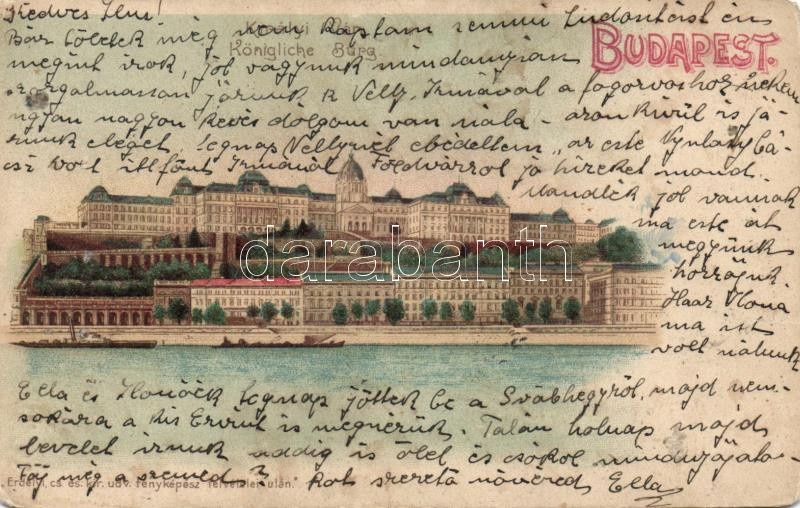 Kedves Ilus!
Királyi Vár
Königliche Burg
BUDAPEST.
Bár tőletek még nem kaptam semmi tudósítást én
megint irok, jól vagyunk mindannyian
szorgalmasan járunk a Velly. Irmával a fogorvoshoz, nekem
ugyan nagyon kevés dolgom van nála - azonkivül is já-
runk eleget, tegnap Nellynél ebédeltem, az este
volt itt fönt Irmánál Földvárról jó hireket mond.
jól vannak
ma este át
megyünk
hozzájuk.
Haar Ilona
ma is itt
volt nálunk
darabanth
Ella és Ilonáék tegnap jöttek be a Svábhegyről, majd nem-
sokára a kis Ervint is megnézzük. Talán holnap majd
levelet irunk addig is ölel és csókol mindnyájato-
Fáj még a szemed? kat szerető nővéred Ella
Erdélyi, cs. és kir. udv. fényképész felvételei után.